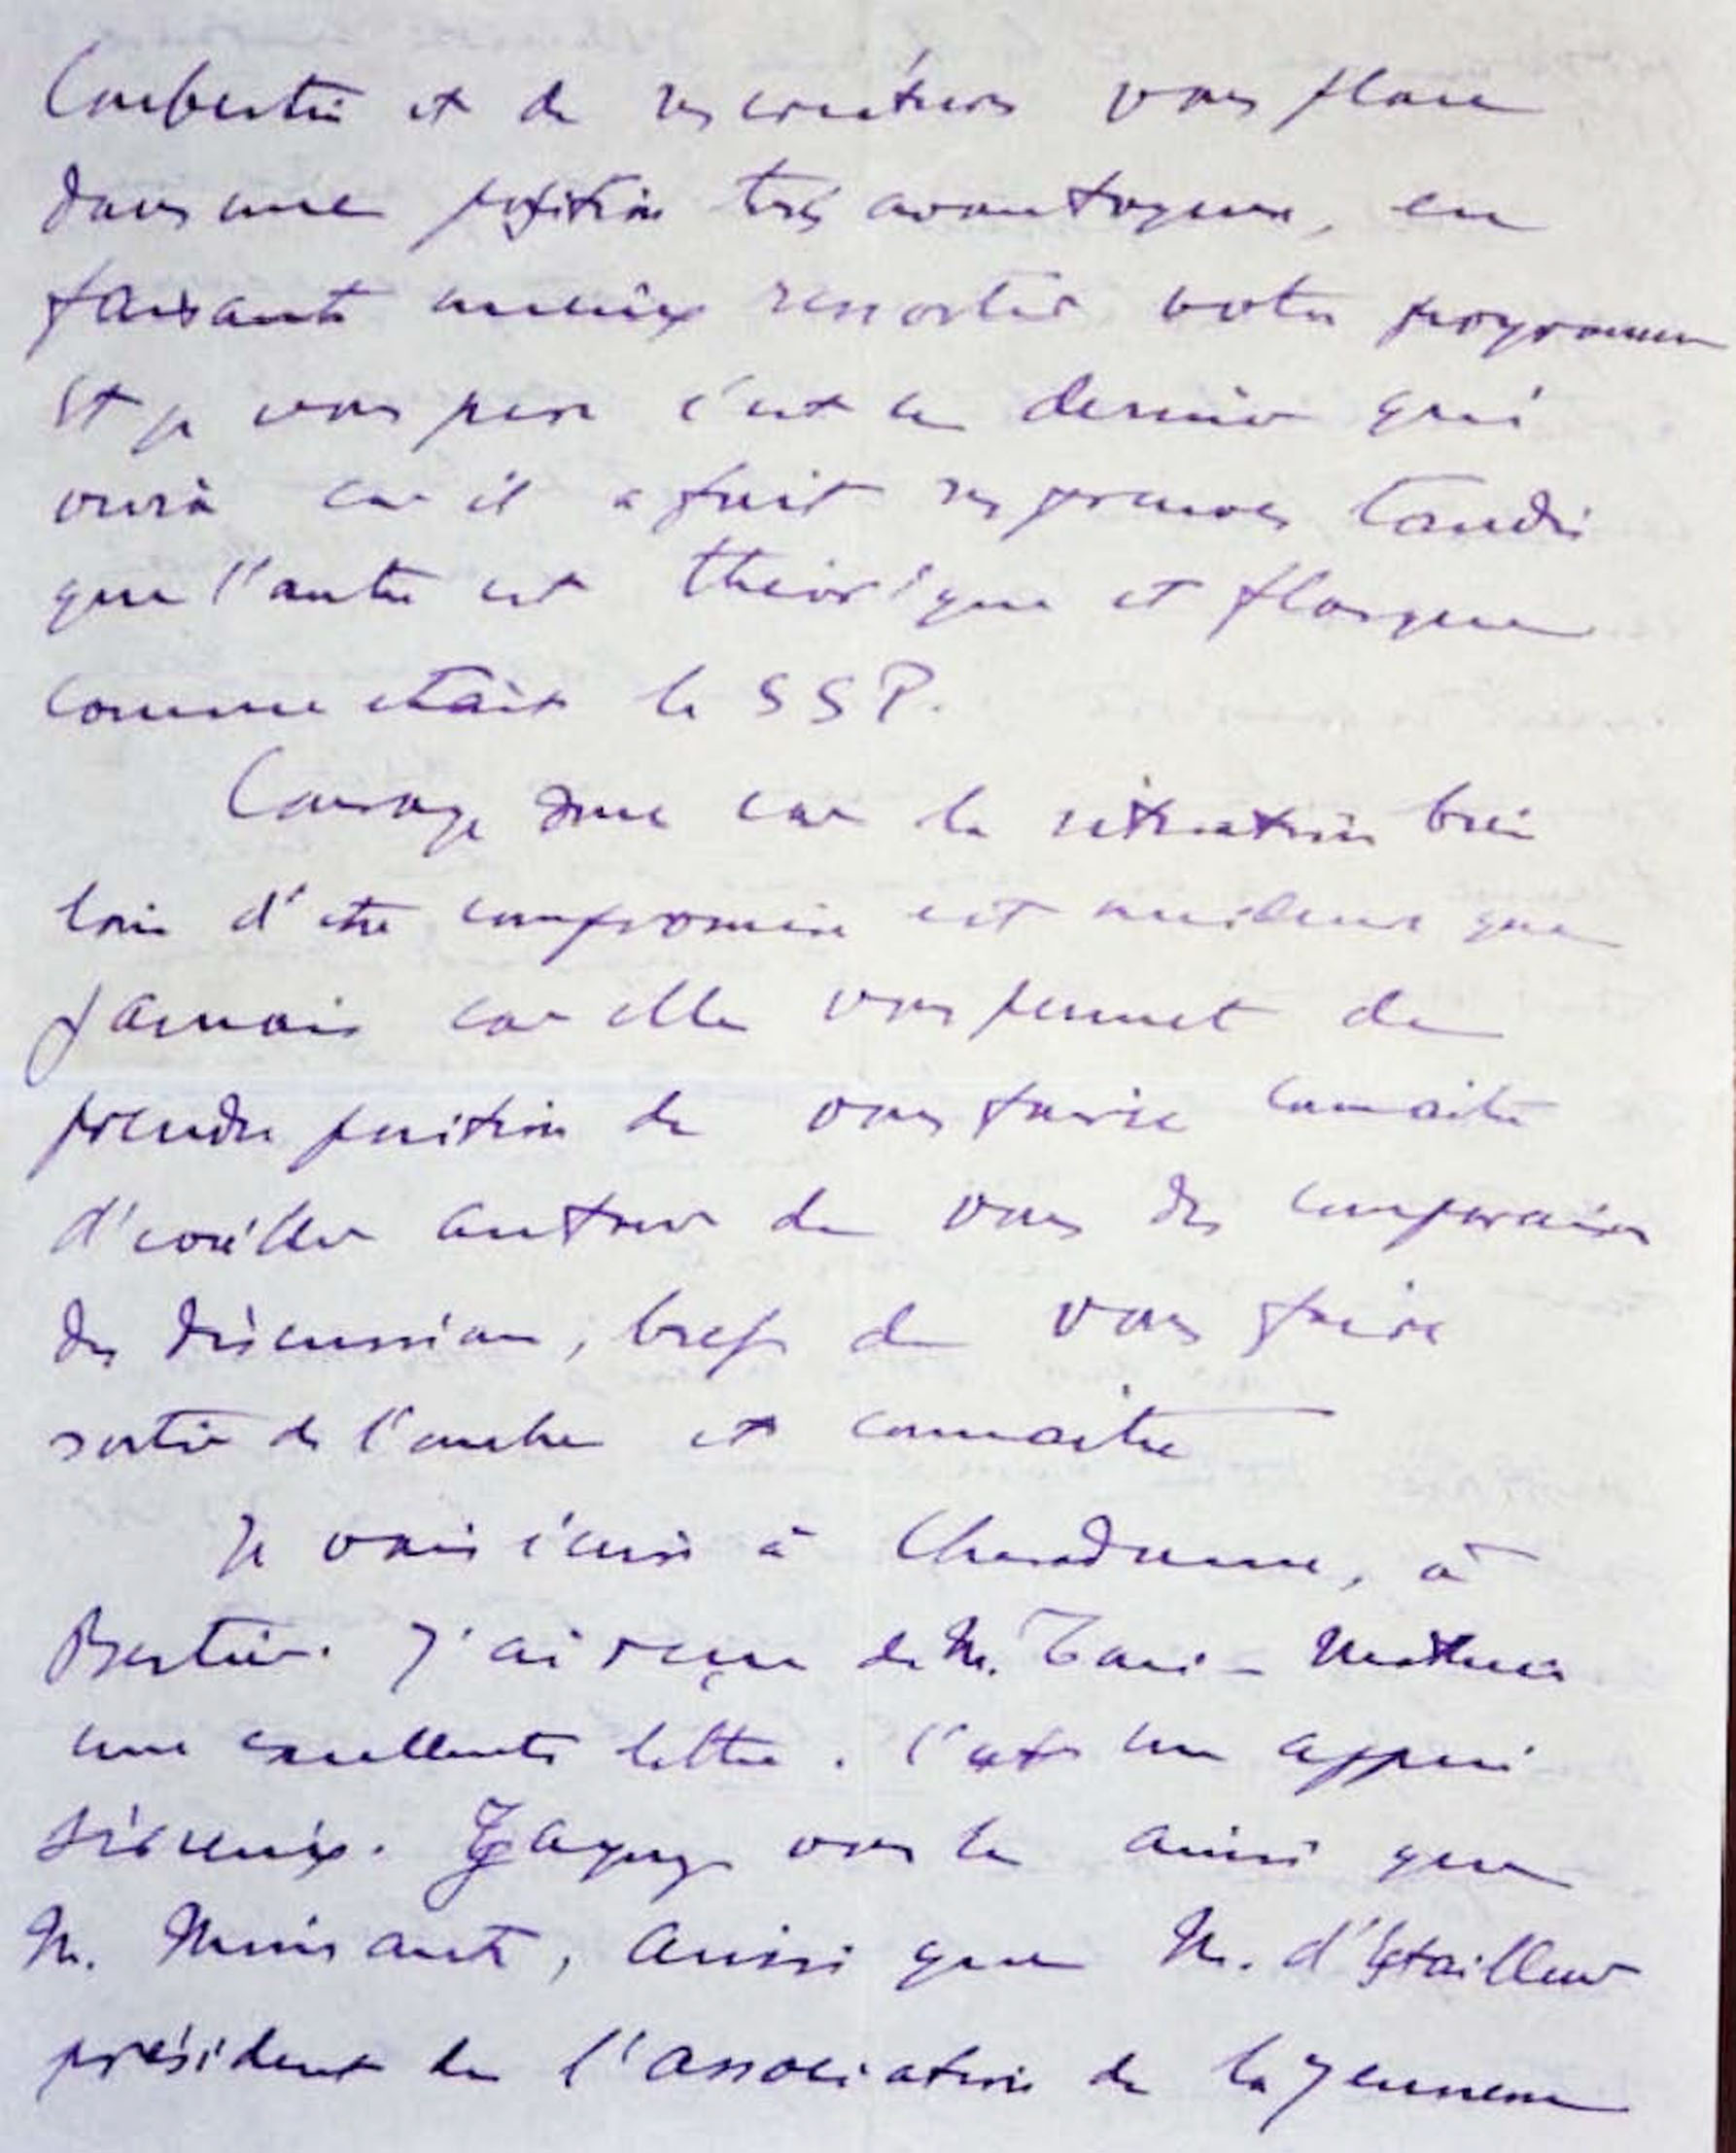 Coubertin et de ses créatures vous place
dans une position très avantageuse, en
faisant mieux ressortir votre programme
Et je vous c'est ce dernier qui
car il a fait ses preuves tandis
que l'autre est théorique et flasque
comme etait la SSP.
Courage donc car la situation bien
loin d'etre compromise est meilleure que
jamais car elle vous permet de
prendre position de vous faire connaitre
d'éveiller autour de vous des comparaisons
des discussions, bref de vous faire
sortir de l'ombre et connaitre
Je vais écrire à Chardonne, à
J'ai reçu de M.
une excellente lettre. C'est un appui
sérieux. vous le ainsi que
M. , ainsi que M.
président de l'association de la Jeunesse